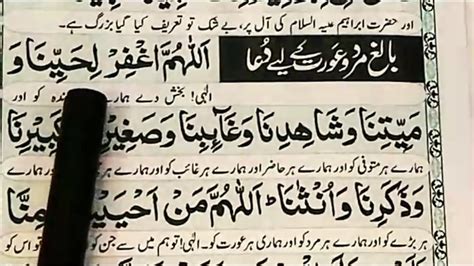 اور حضرت ابراہیم علیہ السلام کی آل پر، بے شک تو تعریف کیا گیا بزرگ ہے۔
بالغ مرد و عورت کے لیے دُعا اَللّٰهُمَّ اغْفِرْ لِحَيِّنَا وَ
الٰہی! بخش دے ہمارے زندہ کو اور
مَيِّتِنَا وَشَاهِدِنَا وَغَآئِبِنَا وَصَغِيْرِنَا وَكَبِيْرِنَا
ہمارے ہر متوفی کو اور ہمارے ہر حاضر اور ہمارے ہر غائب کو اور ہمارے ہر
وَذَكَرِنَا وَاُنْثَانَا ؕ اَللّٰهُمَّ مَنْ اَحْيَيْتَهٗ مِنَّا
ہر بڑے کو اور ہمارے ہر مرد کو اور ہماری ہر عورت کو۔ الٰہی! تو ہم میں سے جس کو تو اس کو